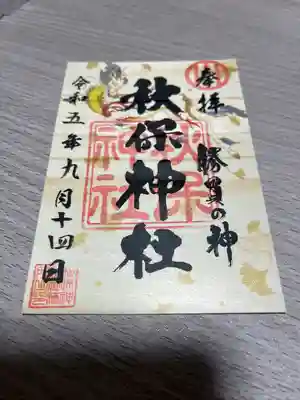 奉拝
勝負の神
秋保神社
秋保
神社
令和五年九月十四日